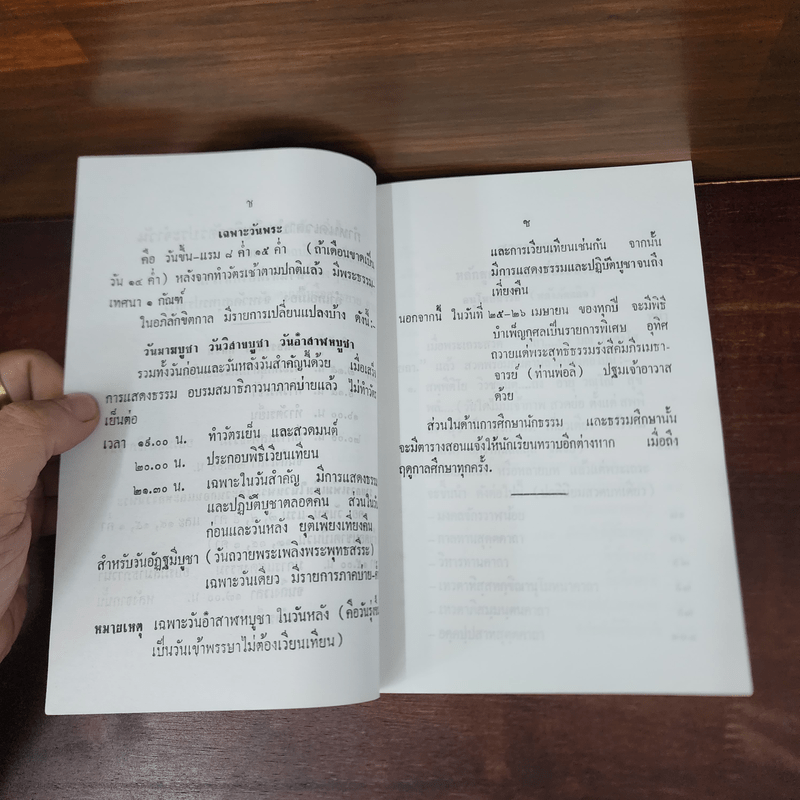 ช
เฉพาะวันพระ
คือ วันขึ้น-แรม ๘ ค่ำ ๑๕ ค่ำ (ถ้าเดือนขาดเป็น
วัน ๑๔ ค่ำ) หลังจากทำวัตรเช้าตามปกติแล้ว มีพระธรรม
เทศนา ๑ กัณฑ์
ในอภิลักขิตกาล มีรายการเปลี่ยนแปลงบ้าง ดังนี้:-
วันมาฆบูชา วันวิสาขบูชา วันอาสาฬหบูชา
รวมทั้งวันก่อนและวันหลังวันสำคัญนี้ด้วย เมื่อเสร็จ
การแสดงธรรม อบรมสมาธิภาวนาภาคบ่ายแล้ว ไม่ทำวัตร
เย็นต่อ
เวลา ๑๙.๐๐ น. ทำวัตรเย็น และสวดมนต์
๒๐.๐๐ น. ประกอบพิธีเวียนเทียน
๒๑.๓๐ น. เฉพาะในวันสำคัญ มีการแสดงธรรม
และปฏิบัติบูชาตลอดคืน ส่วนใน
ก่อนและวันหลัง ยุติเพียงเที่ยงคืน
สำหรับวันอัฏฐมีบูชา (วันถวายพระเพลิงพระพุทธสรีระ)
เฉพาะวันเดียว มีรายการภาคบ่าย-
หมายเหตุ เฉพาะวันอาสาฬหบูชา ในวันหลัง (คือวันรุ่งขึ้น
เป็นวันเข้าพรรษาไม่ต้องเวียนเทียน)
ซ
และการเวียนเทียนเช่นกัน จากนั้น
มีการแสดงธรรมและปฏิบัติบูชาจนถึง
เที่ยงคืน
นอกจากนี้ ในวันที่ ๒๕-๒๖ เมษายน ของทุกปี จะมีพิธี
บำเพ็ญกุศลเป็นรายการพิเศษ อุทิศ
ถวายแด่พระสุทธิธรรมรังสีคัมภีรเมธา-
จารย์ (ท่านพ่อลี) ปฐมเจ้าอาวาส
ด้วย
ส่วนในด้านการศึกษานักธรรม และธรรมศึกษานั้น
จะมีตารางสอนแจ้งให้นักเรียนทราบอีกต่างหาก เมื่อถึง
ฤดูกาลศึกษาทุกครั้ง.